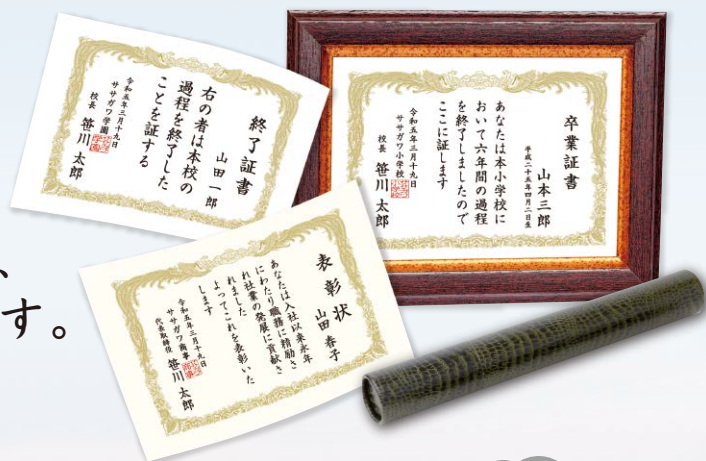 終了証書
山田一郎
右の者は本校の
過程を終了した
ことを証する
令和五年三月十九日
ササガワ学園
校長 笹川太郎
卒業証書
山本三郎
平成二十五年四月二日生
あなたは本小学校に
おいて六年間の過程
を終了しましたので
ここに証します
令和五年三月十九日
ササガワ小学校
校長 笹川太郎
、
す。
表彰状
山田春子
あなたは入社以来永年
にわたり職務に精励さ
れ社業の発展に貢献さ
れました
よってこれを表彰いた
します
令和五年三月十九日
ササガワ商事
代表取締役 笹川太郎